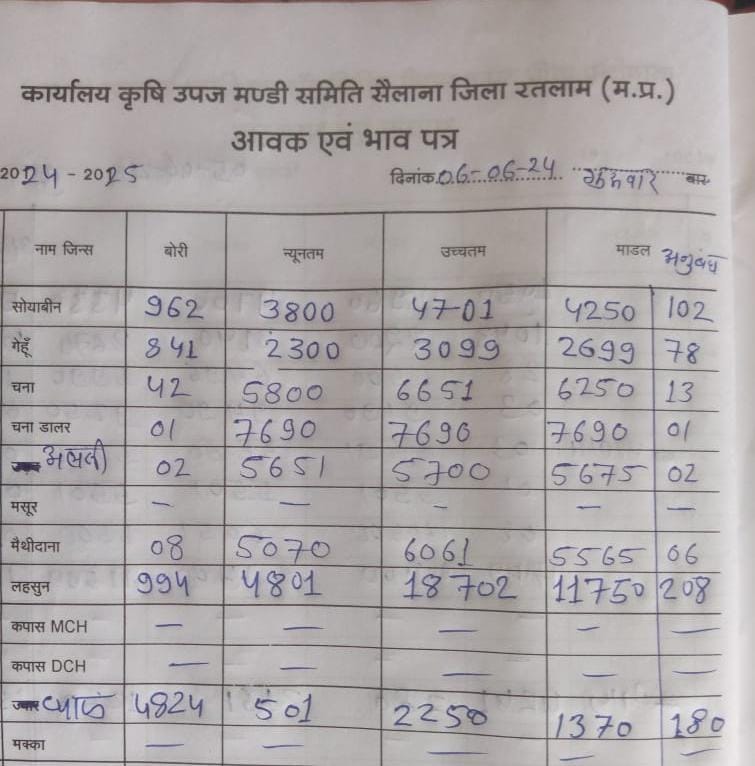 कार्यालय कृषि उपज मण्डी समिति सैलाना जिला रतलाम (म.प्र.)
आवक एवं भाव पत्र
2024 - 2025 दिनांक 06-06-24 वार
नाम जिन्स बोरी न्यूनतम उच्चतम माडल अनुबंध
सोयाबीन 962 3800 4701 4250 102
गेहूँ 841 2300 3099 2699 78
चना 42 5800 6651 6250 13
चना डालर 01 7690 7690 7690 01
अलसी 02 5651 5700 5675 02
मसूर — — - — —
मैथीदाना 08 5070 6061 5565 06
लहसुन 994 4801 18702 11750 208
कपास MCH — — — — —
कपास DCH — — — — —
प्याज 4824 501 2250 1370 180
मक्का — — — — —